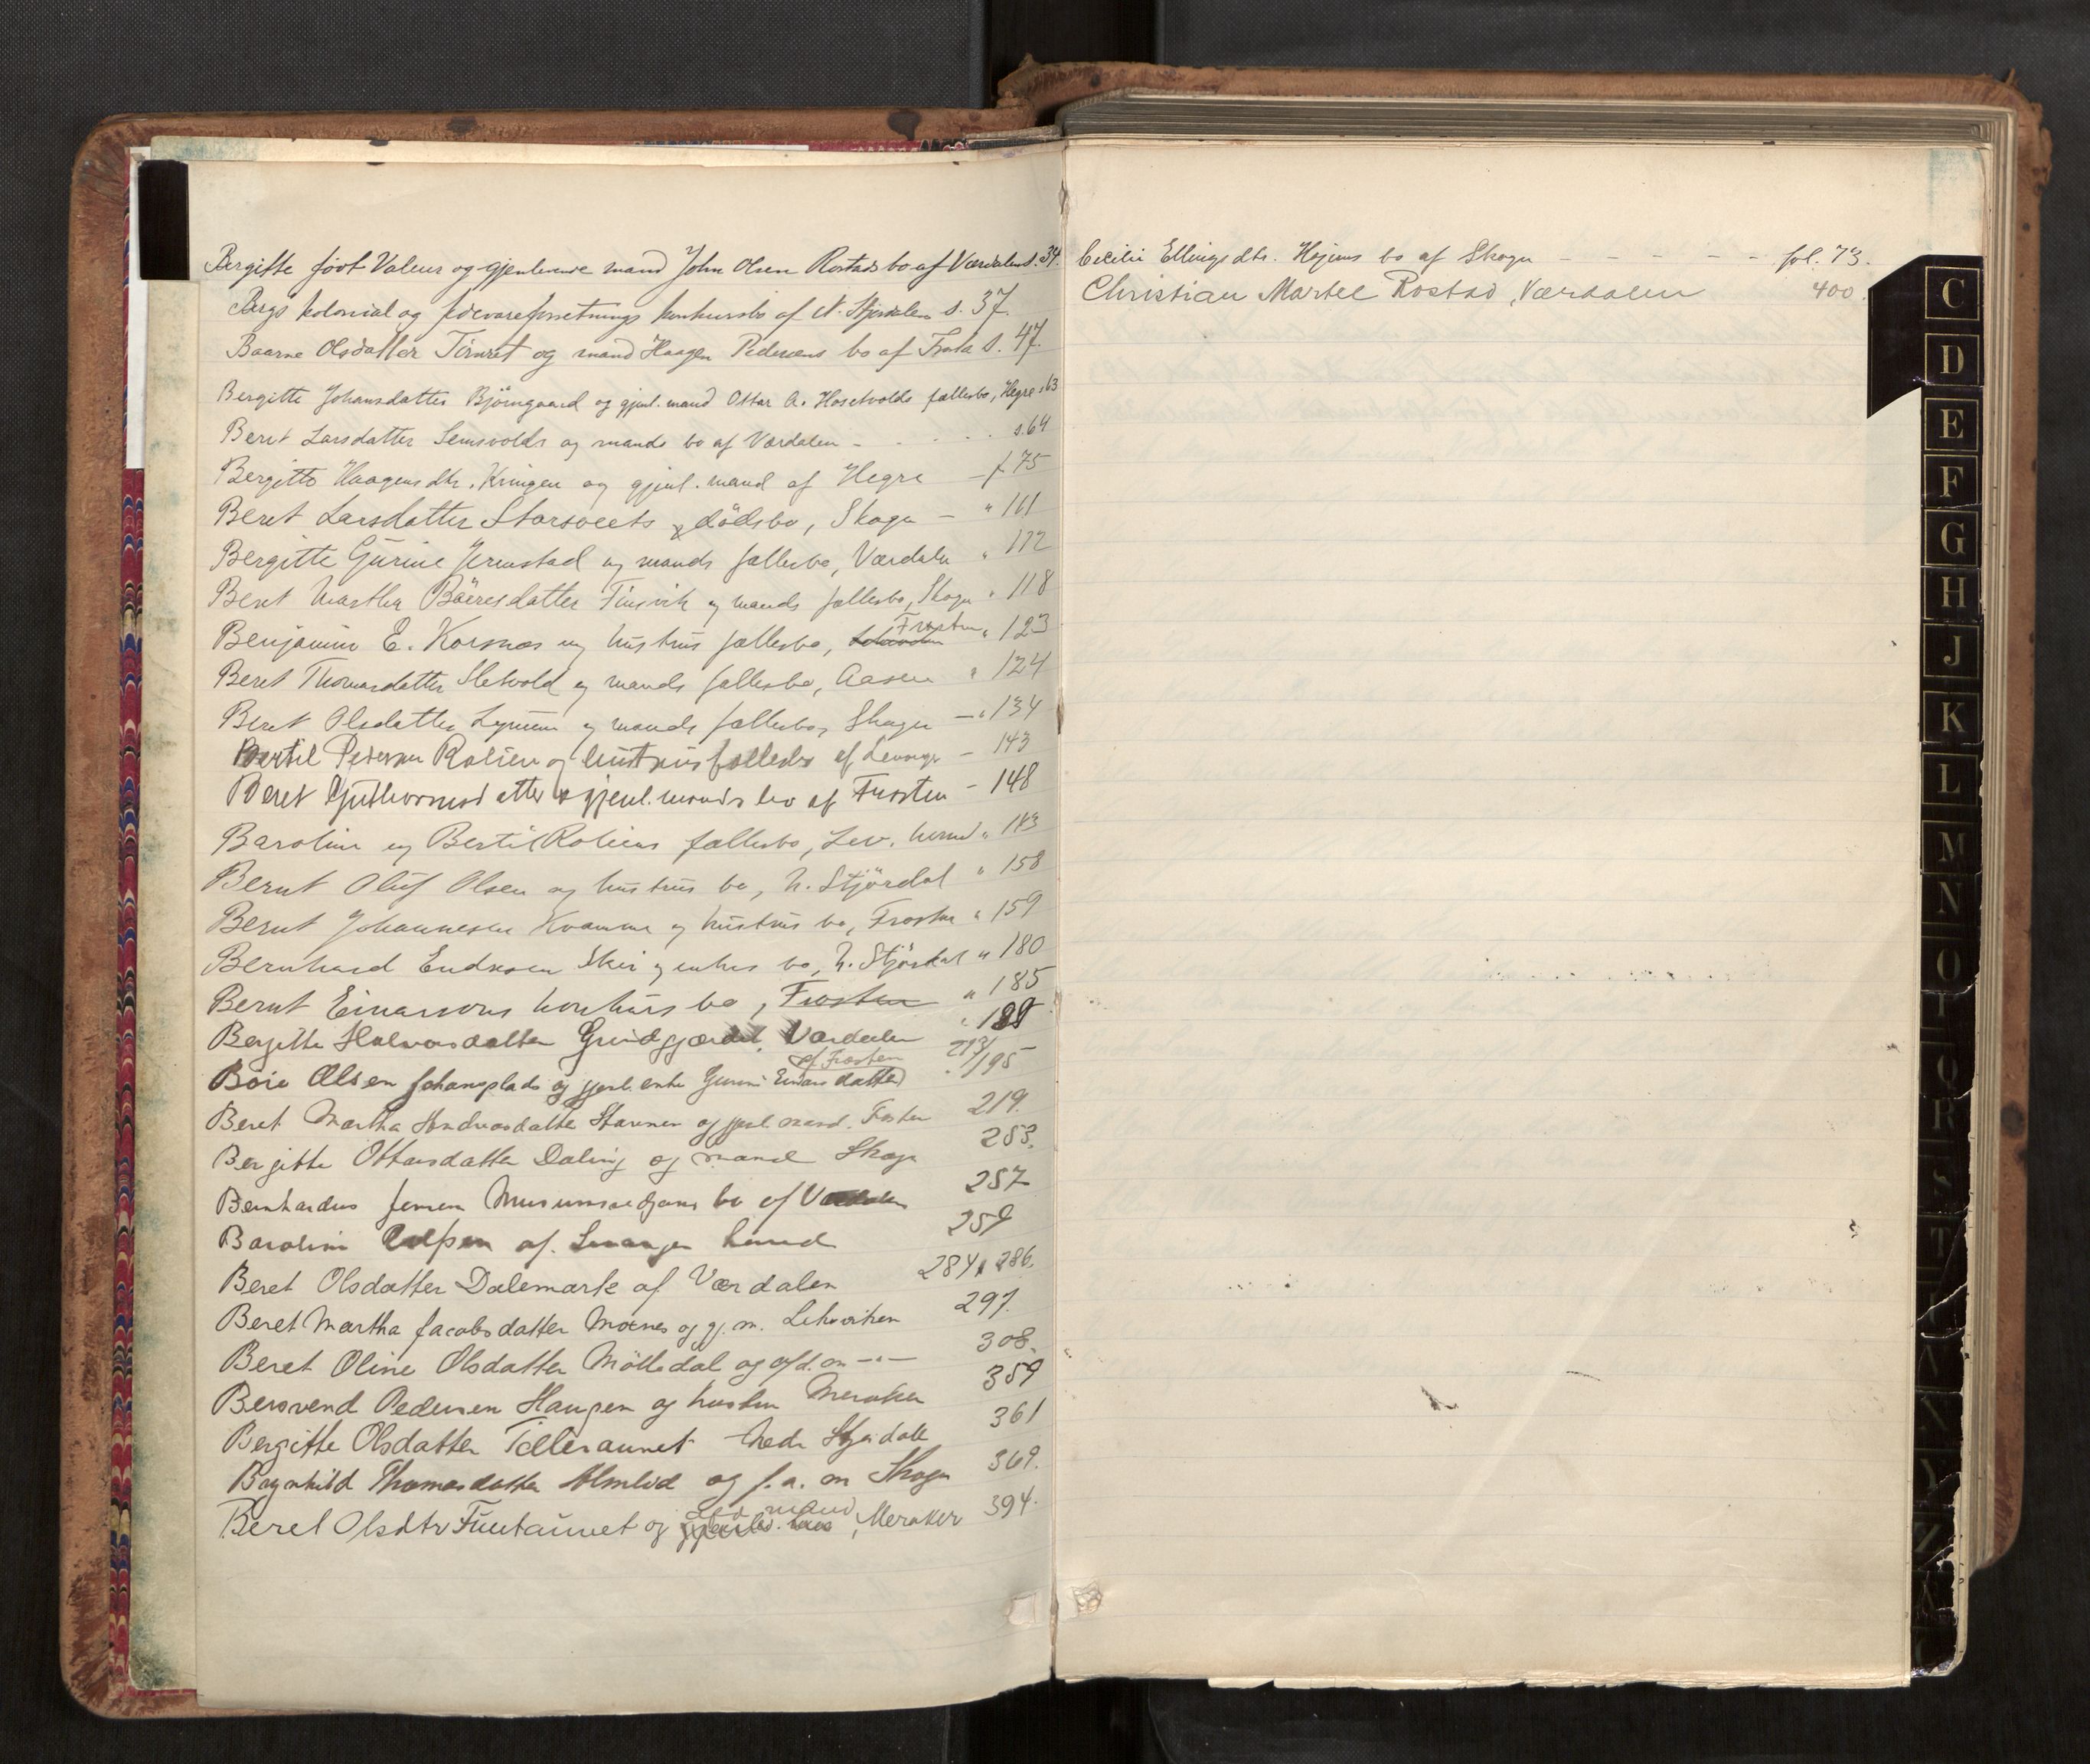 Bergitte født Valeur og gjenlevende mand John Olsen Rostads bo af Værdalen s. 34.
Bergs kolonial og fedevareforretnings konkursbo af N. Stjørdalen s. 37.
Baarne Olsdatter og mand Haagen Pedersens bo af Frosta s. 47.
Bergitte Johansdatter Björngaard og gjenl. mand Ottar A. Hosetvolds fællesbo, Hegre s 63
Beret Larsdatter Semsvolds og mands bo af Værdalen - - - - - s. 64
Bergitte Haagensdtr. Kringen og gjenl. mand af Hegre - f. 75
Beret Larsdatter Storsveets dødsbo, Skogn - " 101
Bergitte Gurine Jermstad og mands fællesbo, Værdalen " 112
Beret Martha Bäeresdatter Finsvik og mands fællesbo, Skogn " 118
Benjamin E. Korsnæs og hustrus fællesbo, Frosten " 123
Beret Thomasdatter Sletvold og mands fællesbo, Aasen " 124
Beret Olsdatter og mands fællesbo, Skogn - " 134
Bertil Pedersen Rolien og hustrus fællesbo af Levanger - 143
Beret Guthormsdatter & gjenl. mands bo af Frosten - 148
Baroline og Bertil Roliens fællesbo, Lev. herred " 143
Bernt Oluf Olsen og hustrus bo, N. Stjördal " 158
Bernt Johannesen Kvamme og hustrus bo, Frosten " 159
Bernhard Endresen Skei og enkes bo, N. Stjørdal " 180
Bernt Einarsons konkursbo, Frosten " 185
Bergitte Halvorsdatter Grindgjærdet, Værdalen " 189
Boie Olsen Johansplads og gjenl. enke Gunni Einarsdatter af Frosten 213/195
Beret Martha Andreasdatter Stavnen og gjenl. mand. Frosten 219.
Bergitte Ottarsdatter Daling og mand Skogn 253.
Bernhardus Jensen bo af Værdalen 257
Baroline af Levanger herred 259
Beret Olsdatter Dalemark af Værdalen 284, 286.
Beret Martha Jacobsdatter Moxnes og gj. m. Leksviken 297.
Beret Oline Olsdatter Mölledal og afd. m -"- 308.
Bersvend Pedersen Haugen og hustru Meraker 359
Bergitte Olsdatter Tilleraunet Nedr Stjørdal 361
Brynhild Thomasdatter Almlid og f. a. m Skogn 369.
Beret Olsdtr Funtaunet og afd. mand, Meraker 394.
Cecilie Ellingsdtr. Hojems bo af Skogn - - - - - fol. 73.
Christian Martel Rostad, Værdalen 400.
C
D
E
F
G
H
J
K
L
M
N
O
R
S
T